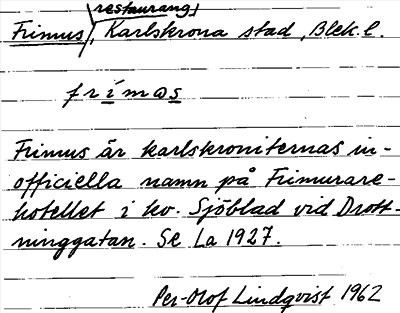 restaurang
Frimus, Karlskrona stad, Blek. l.
frimɷs
Frimus är karlskroniternas in-
officiella namn på Frimurare-
hotellet i kv. Sjöblad vid Drott-
ninggatan. Se La 1927.
Per-Olof Lindqvist 1962